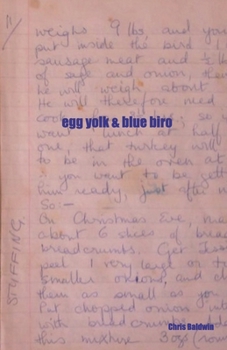 weighs 9 lbs and you
put inside the bird 1
sausage meat and ½ lb
of sage and onion, then
he will weigh about
He will therefore need
cook so
want lunch at half
one, that turkey will
to be in the oven at
if you want to be
him ready, just after
So:-
egg yolk & blue biro
On Christmas Eve, make
about 6 slices of bread
breadcrumbs. Get
peel 1 very large or
smaller onions, and
them as small as you
Put chopped onion into
with breadcrumbs
this mixture 3oz
STUFFING
Chris Baldwin